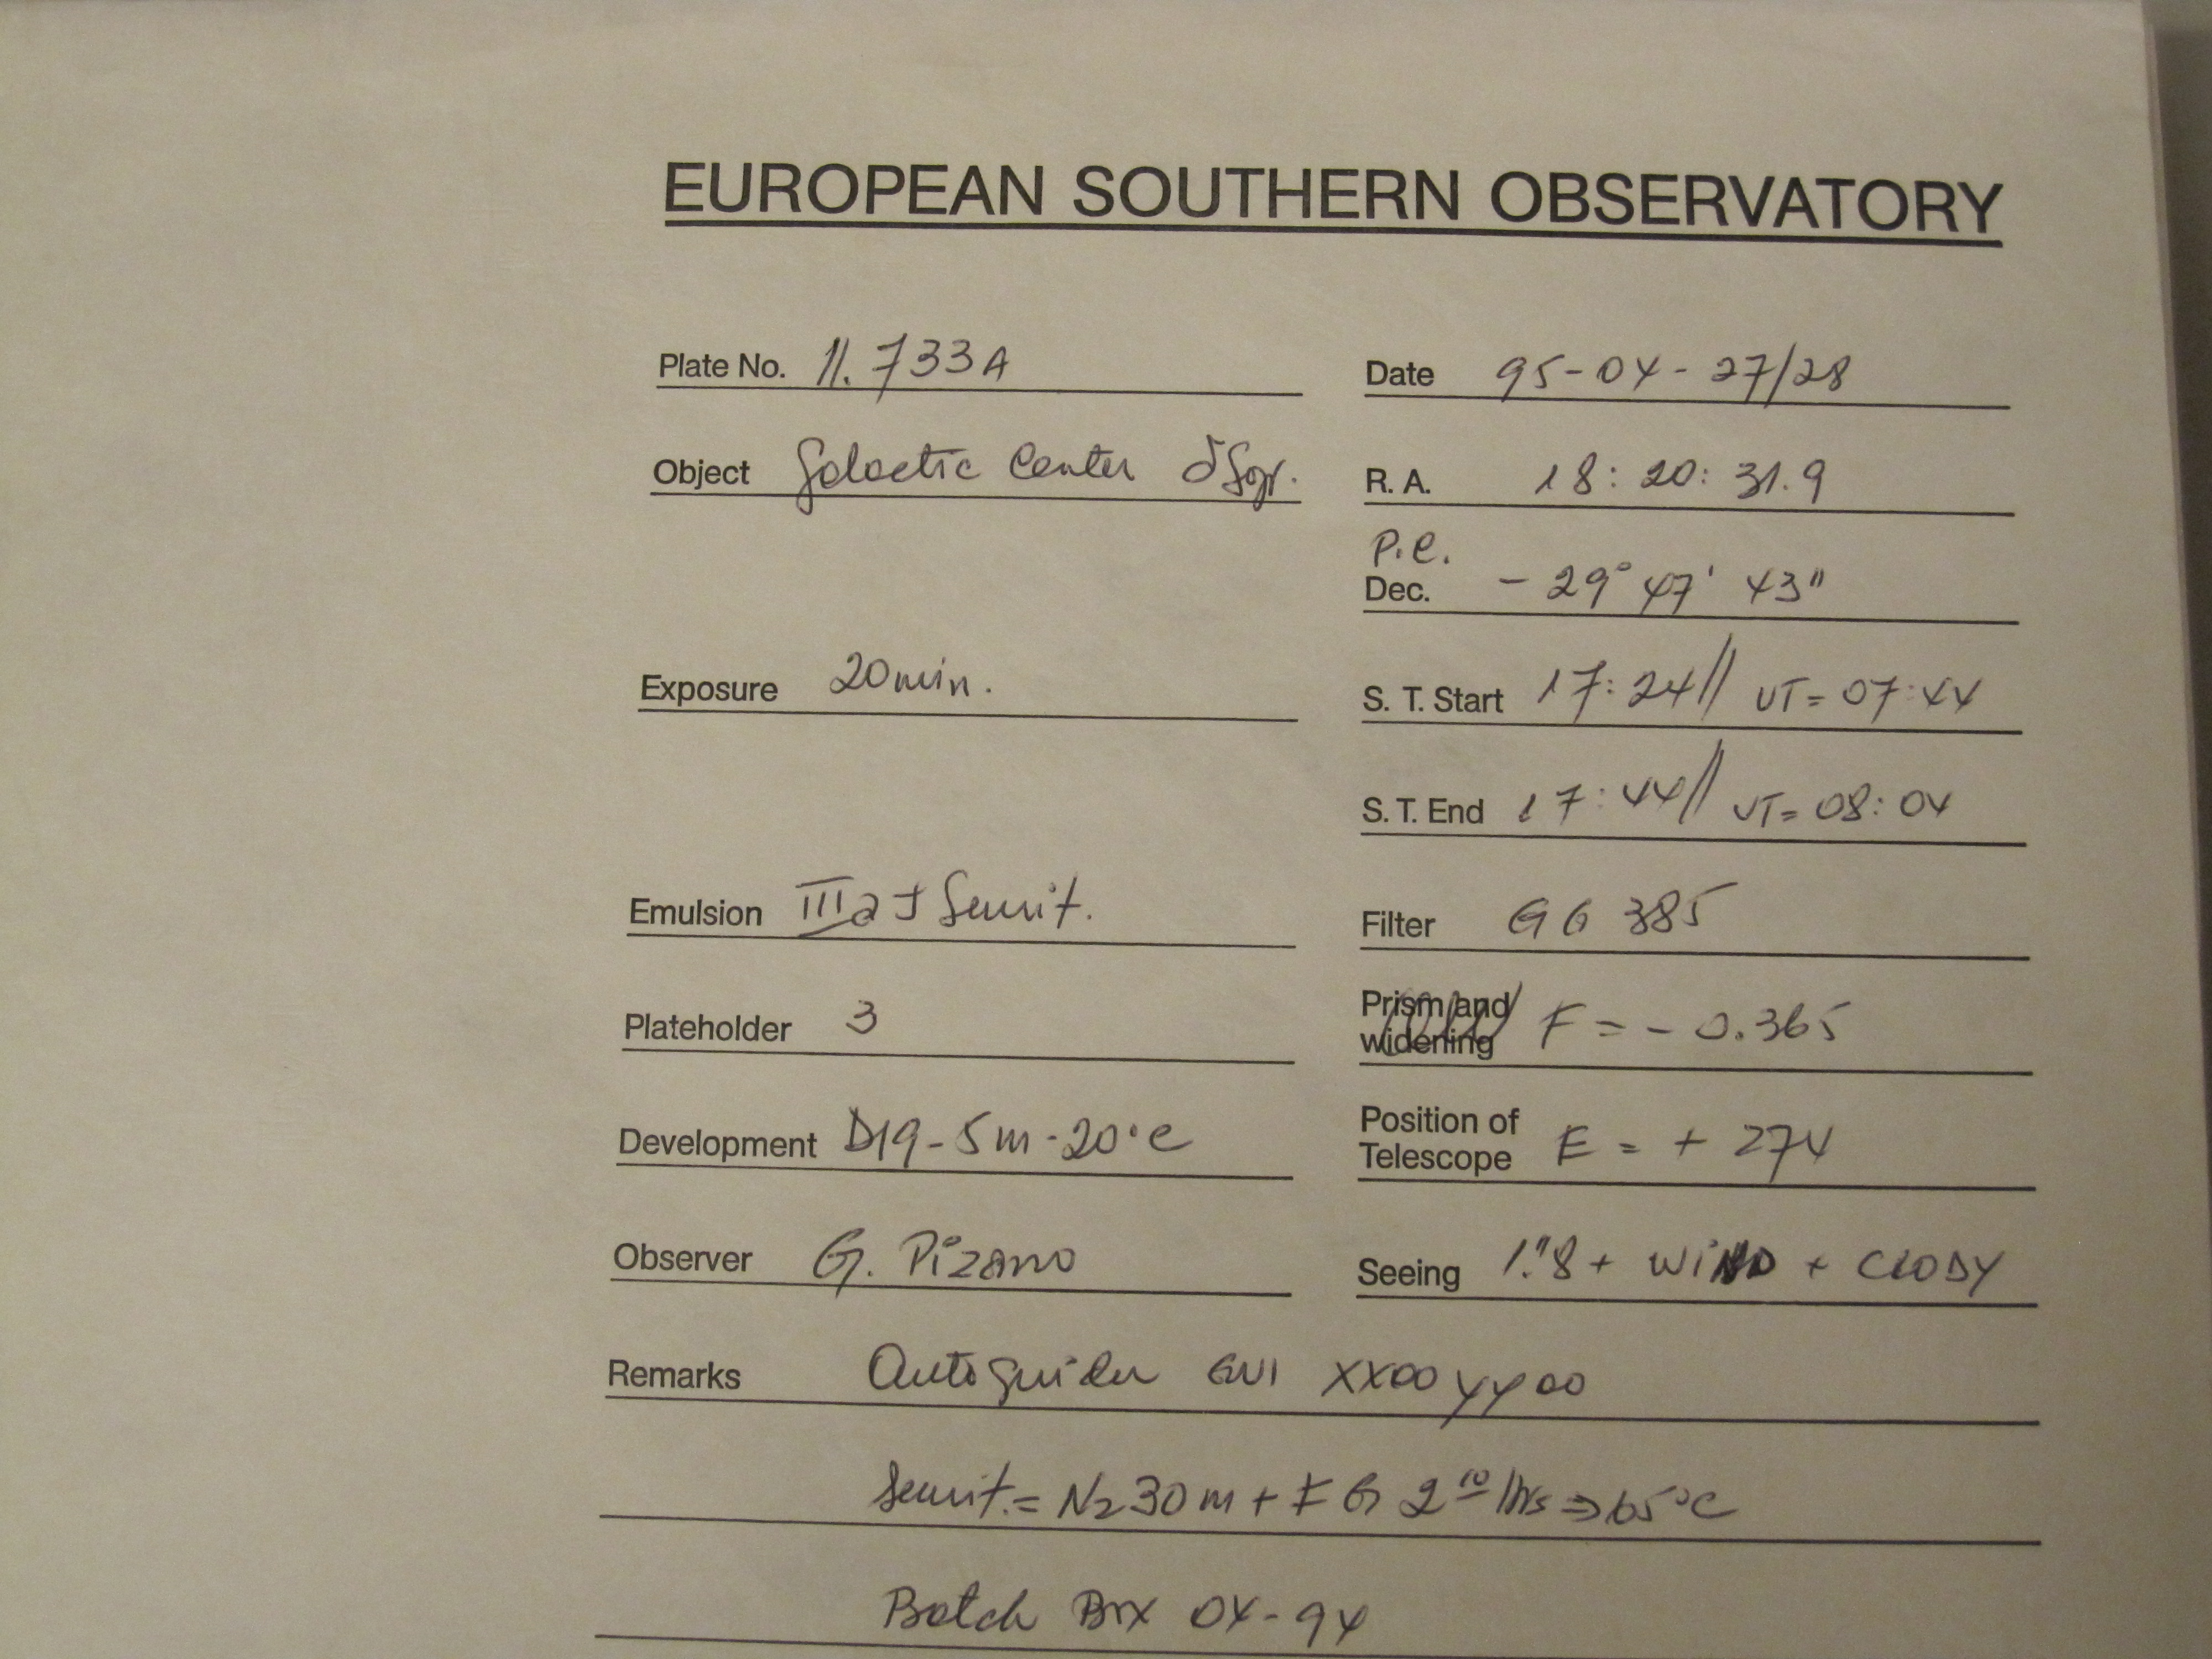 EUROPEAN SOUTHERN OBSERVATORY
Plate No. 11.733A
Date 95-04-27/28
Object Galactic Center δ Sgr.
R. A. 18: 20: 31.9
P.e.
Dec. - 29° 47' 43"
Exposure 20 min.
S. T. Start 17:24// UT= 07:44
S. T. End 17:44// UT= 08:04
Emulsion IIIaJ Sensit.
Filter GG 385
Plateholder 3
Prism and widening F = - 0.365
Development D19-5m-20°C
Position of Telescope E = + 274
Observer G. Pizarro
Seeing 1."8 + WIND + CLODY
Remarks Autoguider XX00 YY00
Sensit. = N2 30m + FG 2 10 hrs ⇒ 65°C
Batch Box 04-94